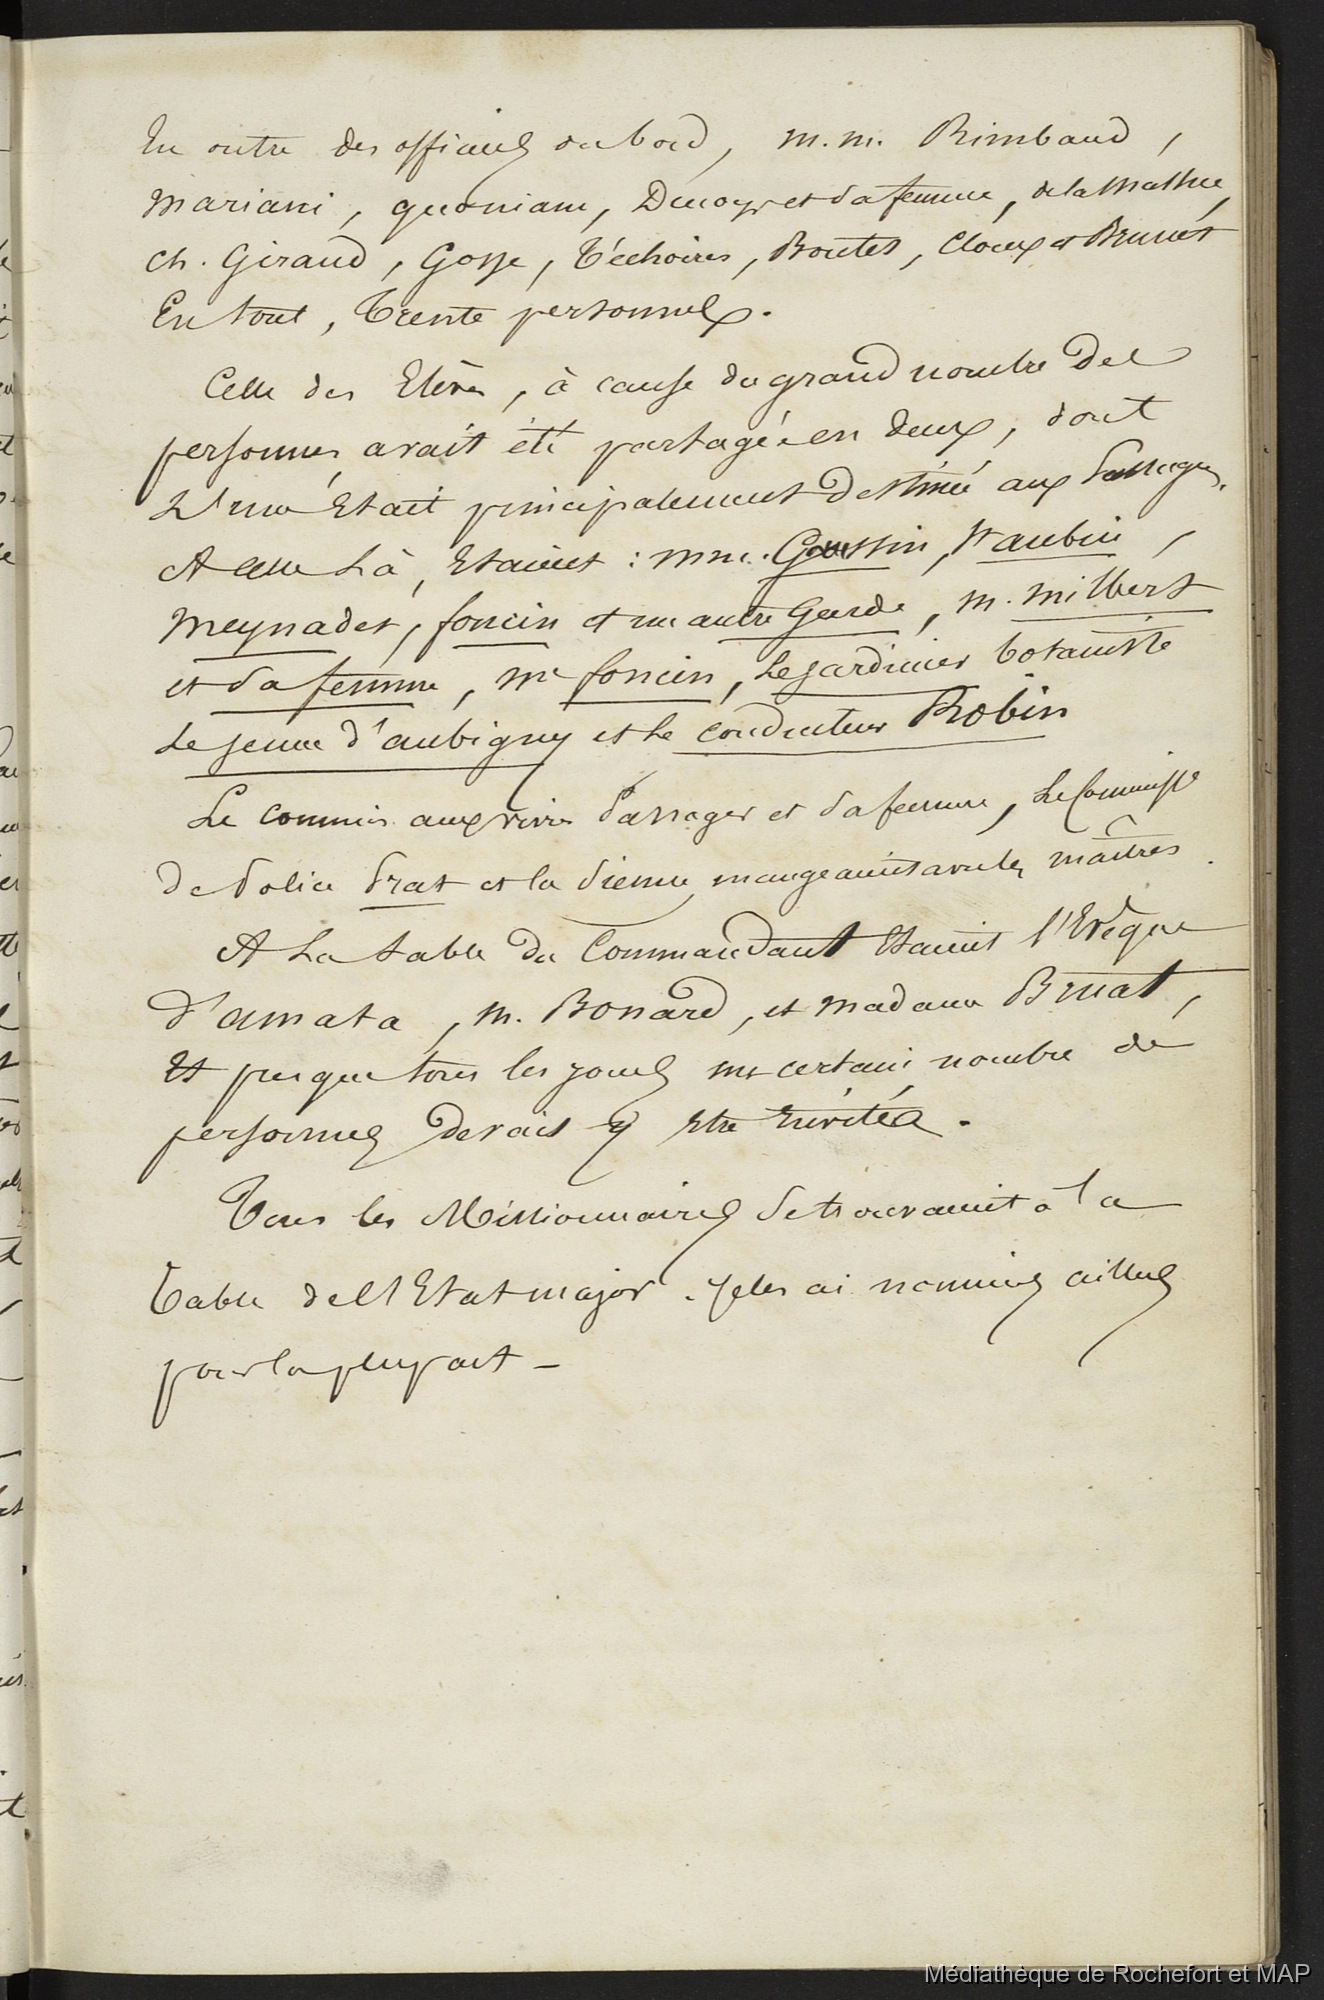 En outre des officiers du bord, m.m. Rimbaud,
Mariani, quoniam, Ducoy et sa femme, de la Mathe,
Ch. Giraud, Gosse, Boutet, et Brunet
En tout, Trente personnes.
Celle des Elèves, à cause du grand nombre des
personnes, avait été partagée en deux, dont
L'une Etait principalement destinée aux Passagers.
A celle Là, Etaient : mm. Goussin, St aubin,
Meynadet, foncin et un autre Garde, M. Milbert
et sa femme, Me foncin, Le jardinier botaniste
Le jeune d'aubigny et Le conducteur Robin
Le commis aux vivres Passager et sa femme, Le Commissre
De Police Prat et la Sienne, mangeaient avec les maîtres.
A La table du Commandant Etaient l'Evêque
D'amata, M. Bonard, et Madame Bruat,
Et presque tous les jours un certain nombre de
personnes devait y Etre Invitées.
Tous les Missionnaires Se trouvaient à la
Table de l'Etat major. Je les ai nommés ailleurs
pour la plupart -
Médiathèque de Rochefort et MAP